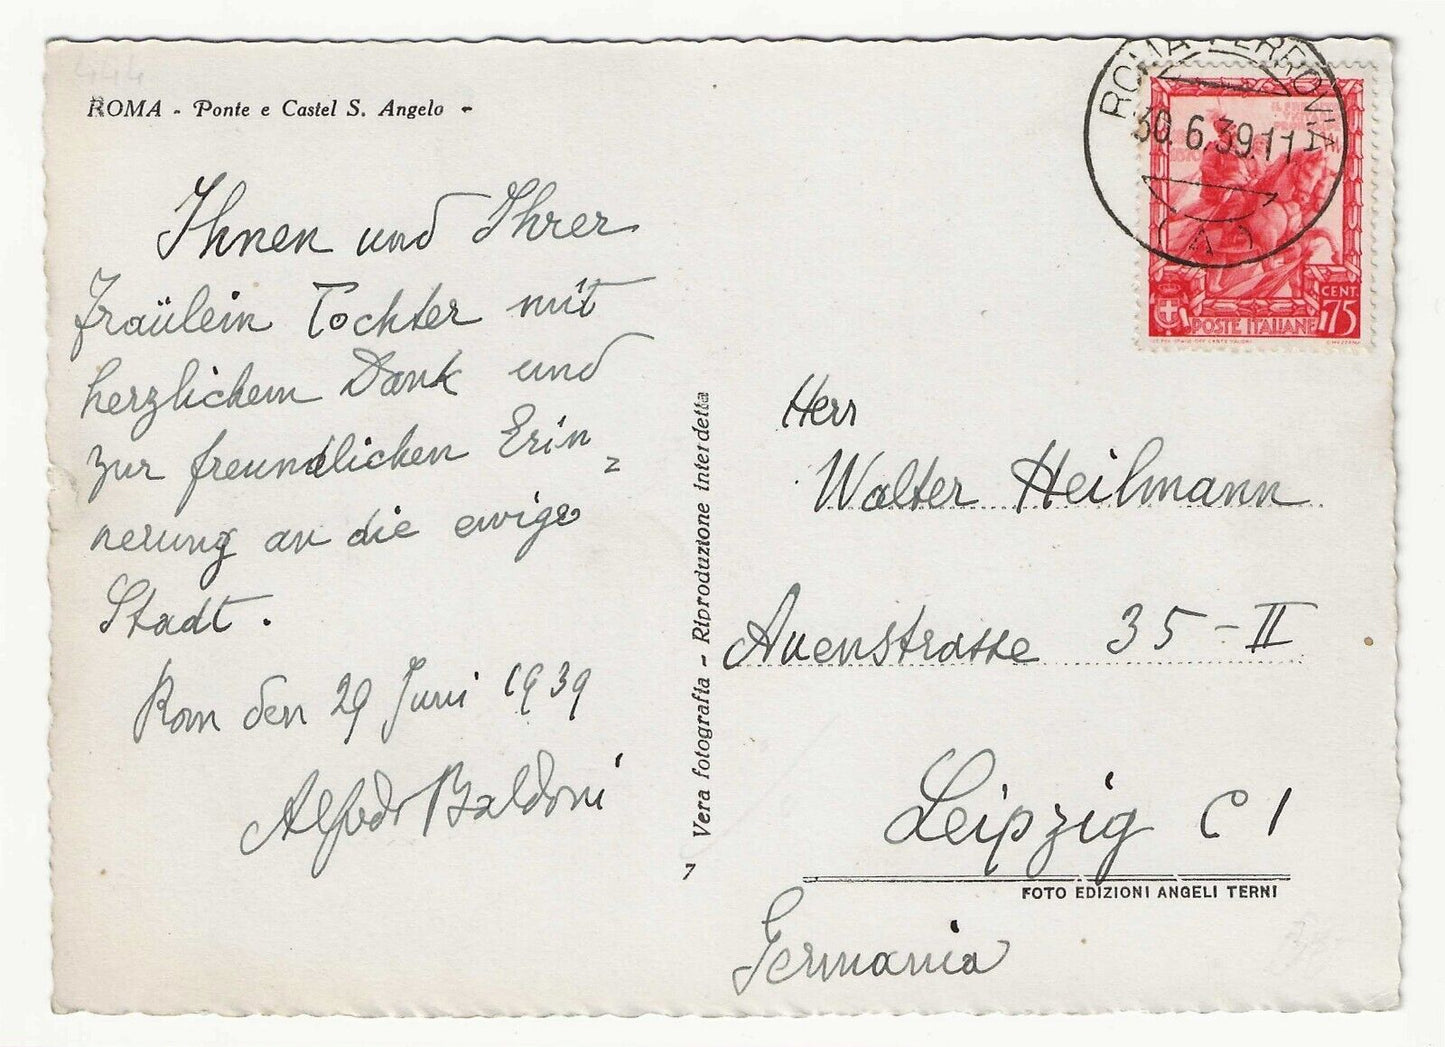 ROMA - Ponte e Castel S. Angelo -
Ihnen und Ihrer
Fraülein Tochter mit
herzlichem Dank und
zur freundlichen Erin=
nerung an die ewige
Stadt.
Rom den 29 Juni 1939
Alfredo Baldoni
7 Vera fotografia - Riproduzione interdetta
ROMA FERROVIA
30.6.39.11
(A)
CENT.
75
POSTE ITALIANE
Herr
Walter Heilmann
Auenstrasse 35-II
Leipzig C 1
FOTO EDIZIONI ANGELI TERNI
Germania